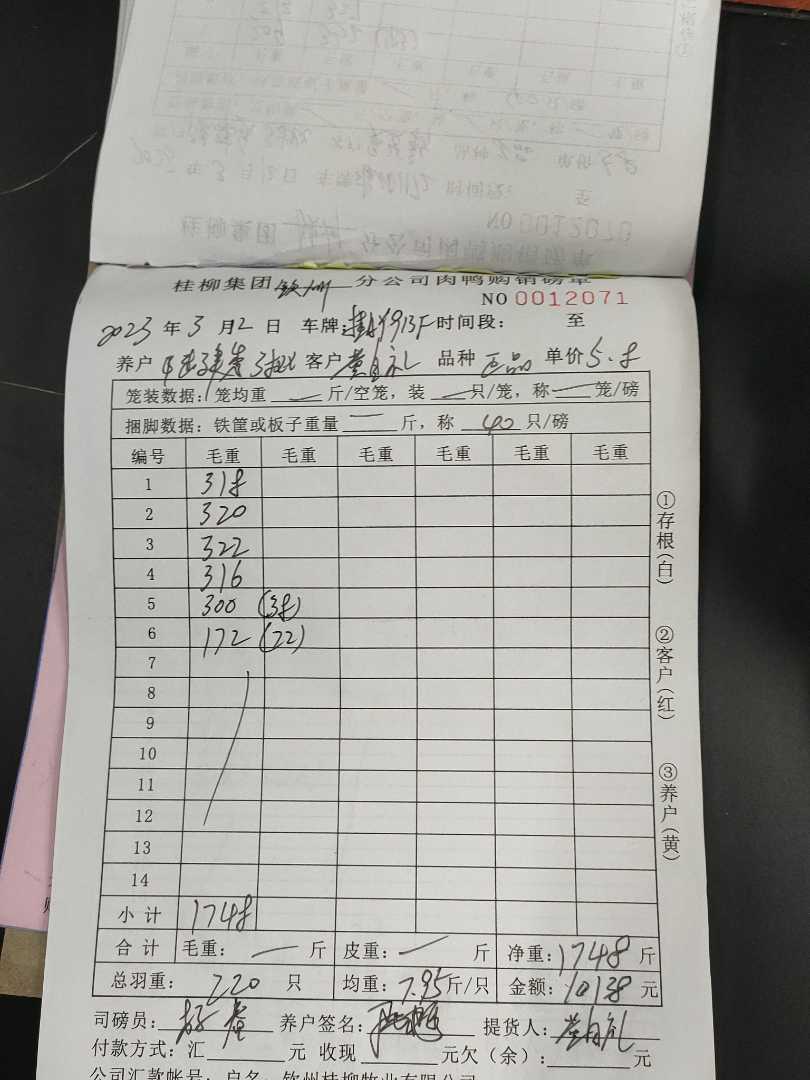 桂柳集团钦州分公司肉鸭购销磅单
NO 0012071
2023年3月2日 车牌: 时间段: 至
养户 客户 黄自礼 品种 正品 单价 5.8
笼装数据: 笼均重 斤/空笼, 装 只/笼, 称 笼/磅
捆脚数据: 铁筐或板子重量 斤, 称 40 只/磅
编号 毛重 毛重 毛重 毛重 毛重 毛重
1 318
2 320
3 322
4 316
5 300 (38)
6 172 (22)
7
8
9
10
11
12
13
14
小计 1748
合计 毛重: 斤 皮重: 斤 净重: 1748 斤
总羽重: 220 只 均重: 7.95 斤/只 金额: 10138 元
司磅员: 养户签名: 提货人: 黄自礼
付款方式: 汇 元 收现 元欠(余): 元
公司汇款帐号: 户名: 钦州桂柳牧业有限公司
①存根(白)
②客户(红)
③养户(黄)
NO 0012070